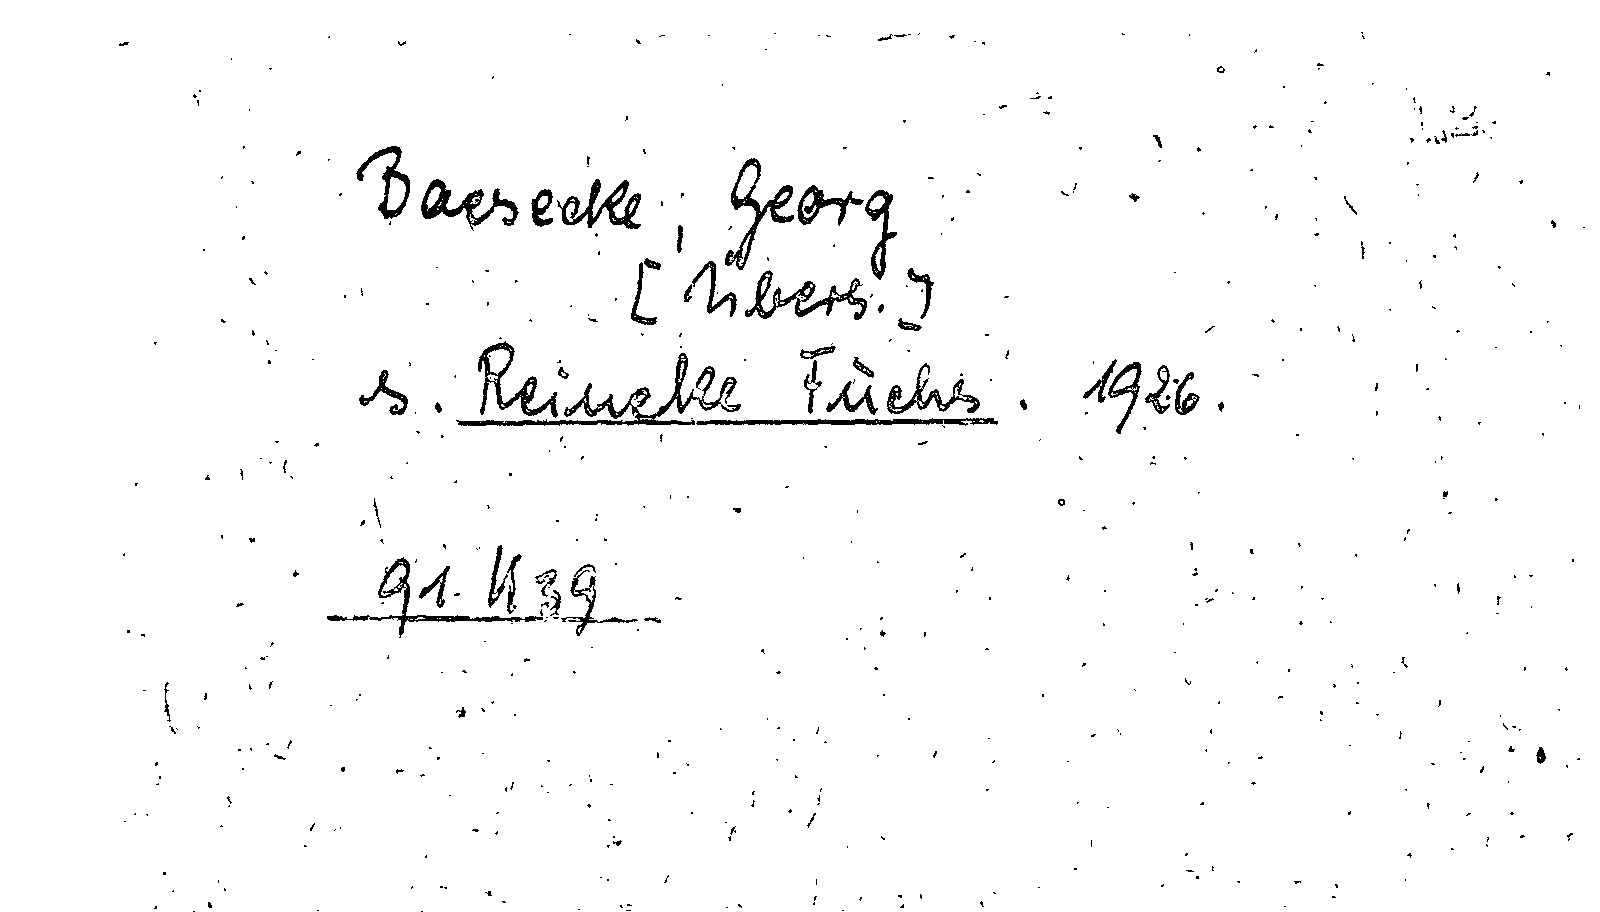 Baesecke, Georg
[Übers.]
s. Reineke Fuchs. 1926.
91. K 39